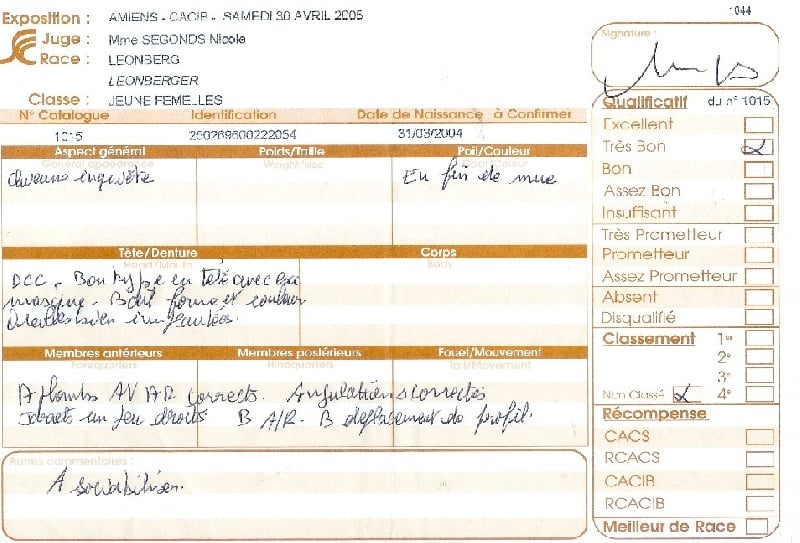 1044
Exposition : AMIENS - CACIB - SAMEDI 30 AVRIL 2005
Juge : Mme SEGONDS Nicole
Race : LEONBERG
LEONBERGER
Classe : JEUNE FEMELLES
N° Catalogue Identification Date de Naissance à Confirmer
1015 250269600222054 31/03/2004
Aspect général Poids/Taille Poil/Couleur
General appearance Weight/size Coat/Colour
inquiète En fin de mue
Tête/Denture Corps
Head/Mouth Body
DCC. Bon type en tête avec
masque. Bon forme et couleur
Oreilles bien implantées.
Membres antérieurs Membres postérieurs Fouet/Mouvement
Forequarters Hindquarters Tail/Movement
Aplombs AV AR corrects. Angulations correctes
Jarrets un peu droits B A/R. B déplacement de profil.
Autres commentaires :
A sociabiliser.
Signature :
Qualificatif du n° 1015
Excellent
Très Bon
Bon
Assez Bon
Insuffisant
Très Prometteur
Prometteur
Assez Prometteur
Absent
Disqualifié
Classement 1er
2e
3e
Non Classé 4e
Récompense
CACS
RCACS
CACIB
RCACIB
Meilleur de Race